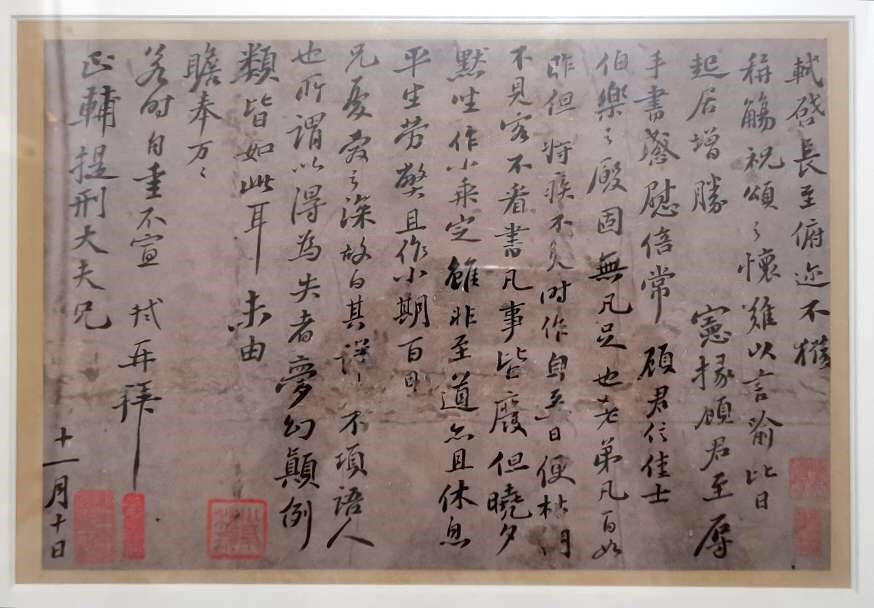 軾啓長至俯迩不獲
稱觴祝頌之懷難以言喻比日
起居增勝 憲掾顧君至辱
手書感慰倍常 顧君信佳士
伯樂之廄固無凡足也老弟凡百如
昨但痔疾不免時作自至日便杜門
不見客不看書凡事皆廢但曉夕
默坐作小乘定雖非至道亦且休息
平生勞弊且作小期百日
兄憂愛之深故白其詳不須語人
也所謂以得為失者夢幻顛倒
類皆如此耳未由
瞻奉万々
若時自重不宣 軾再拜
正輔提刑大夫兄
十一月十日